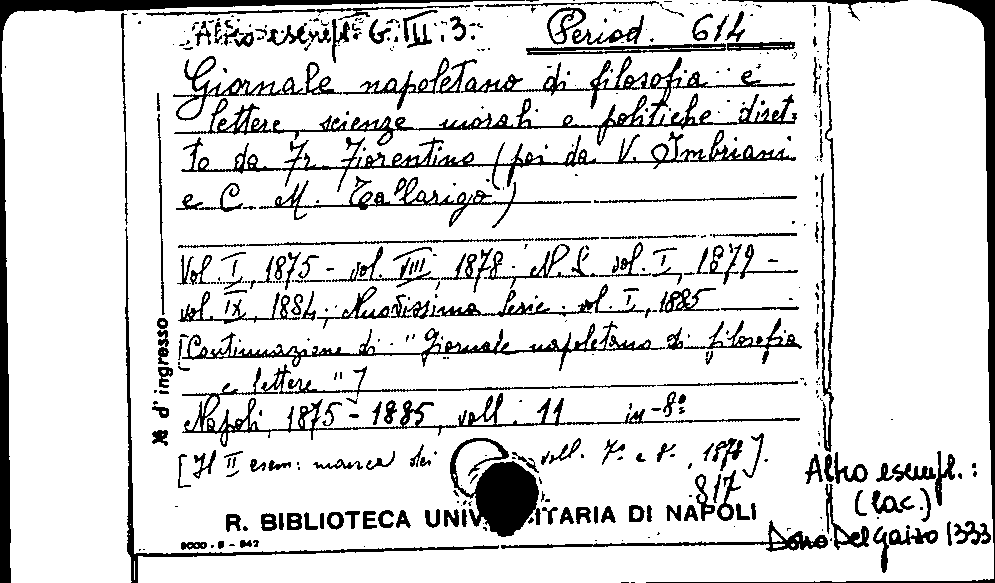 Altro esempl. G. III. 3.
Period. 614
Giornale napoletano di filosofia e
lettere, scienze morali e politiche diret-
to da Fr. Fiorentino (poi da V. Imbriani
e C. M. Tallarigo)
Vol. I, 1875 - vol. VIII, 1878; N. S. vol. I, 1879 -
vol. IX, 1884; Nuovissima Serie: vol. I, 1885
[Continuazione di "Giornale napoletano di filosofia
e lettere"]
Napoli, 1875 - 1885, voll. 11 in-8º
[Il II esem: manca dei voll. 7º e 8º, 1878].
817
№ d'ingresso
R. BIBLIOTECA UNIV SITARIA DI NAPOLI
Altro esempl.:
(lac.)
Dono Del Gaizo 1333